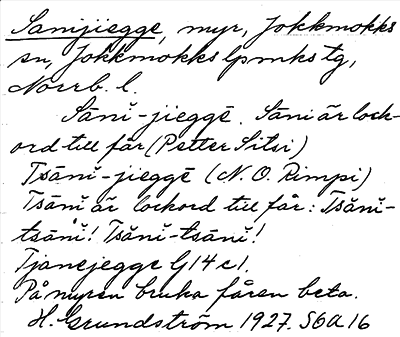 Sanijiegge, myr, Jokkmokks
sn, Jokkmokks lpmks tg,
Norrb. l.
Sāni-jieggē. Sāni är lock-
ord till får (Petter Sitsi)
Tsāni-jieggē (N. O. Rimpi)
Tsāni är lockord till får: Tsāni-
tsāni! Tsāni-tsāni!
Tjanejegge G14c1.
På myren bruka fåren beta.
H. Grundström 1927. S6A16